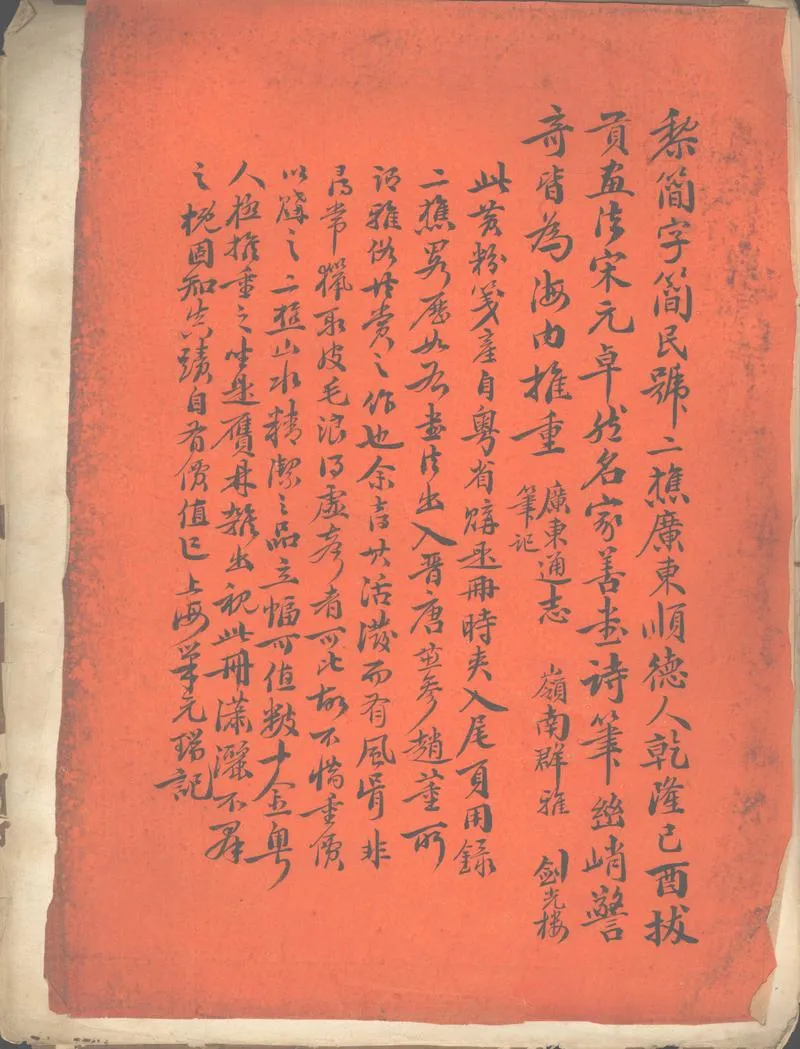 黎簡字簡民號二樵廣東順德人乾隆己酉拔
貢画法宋元卓然名家善畫詩筆幽峭警
奇皆為海内推重
廣東通志 嶺南群雅 劍光樓
筆記
此黃粉箋產自粵省購是冊時夾入尾頁用錄
二樵畧歷如右畫法出入晋唐並參趙董所
謂雅俗共賞之作也余喜其活潑而有風骨非
尋常獵取皮毛浪得虛譽者可比故不惜重價
以購之二樵山水精潔之品立幅可值數十金粤
人極推重之坐是贋本雜出視此冊瀟灑不群
之概固知真蹟自有價值已上海單元瑞記